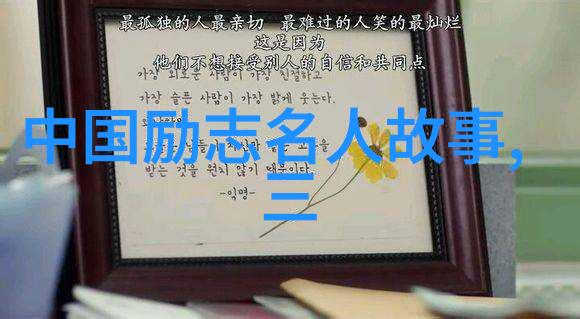 最孤独的人最亲切 最难过的人笑的最灿烂
这是因为
他们不想接受别人的自信和共同点
가장 외로운 사람이 가장 친절하고
가장 슬픈 사람이 가장 밝게 웃는다.
中国励志名人故事,
三
받는 것을 원치 않기 때문이다.
-익명-